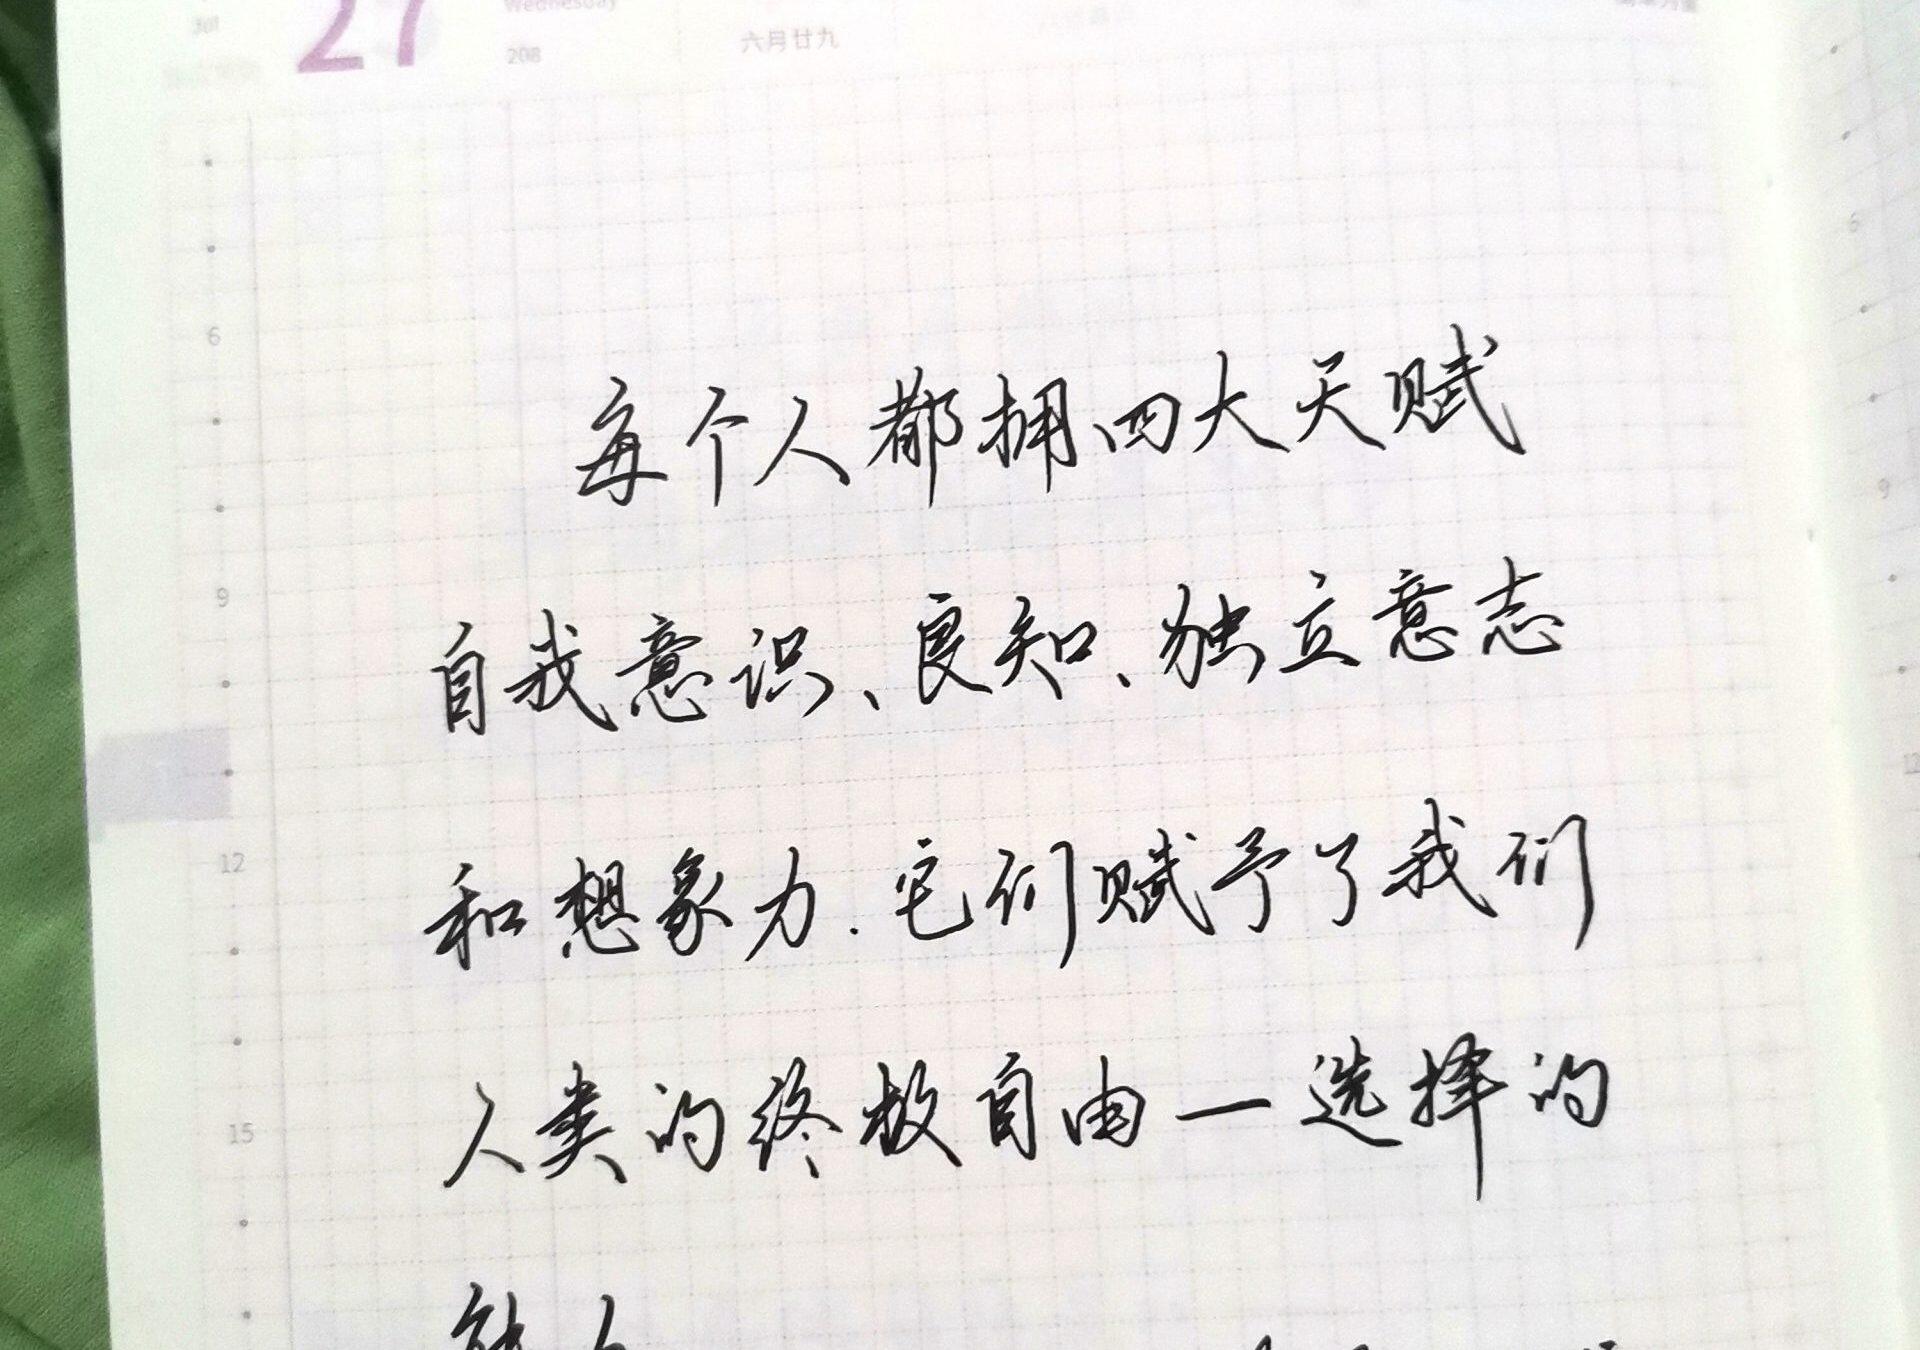 Jul 27 Wednesday
208 六月廿九
6
每个人都拥四大天赋
9
自我意识、良知、独立意志
12
和想象力.它们赋予了我们
15
人类的终极自由一选择的
能力
6
9
12